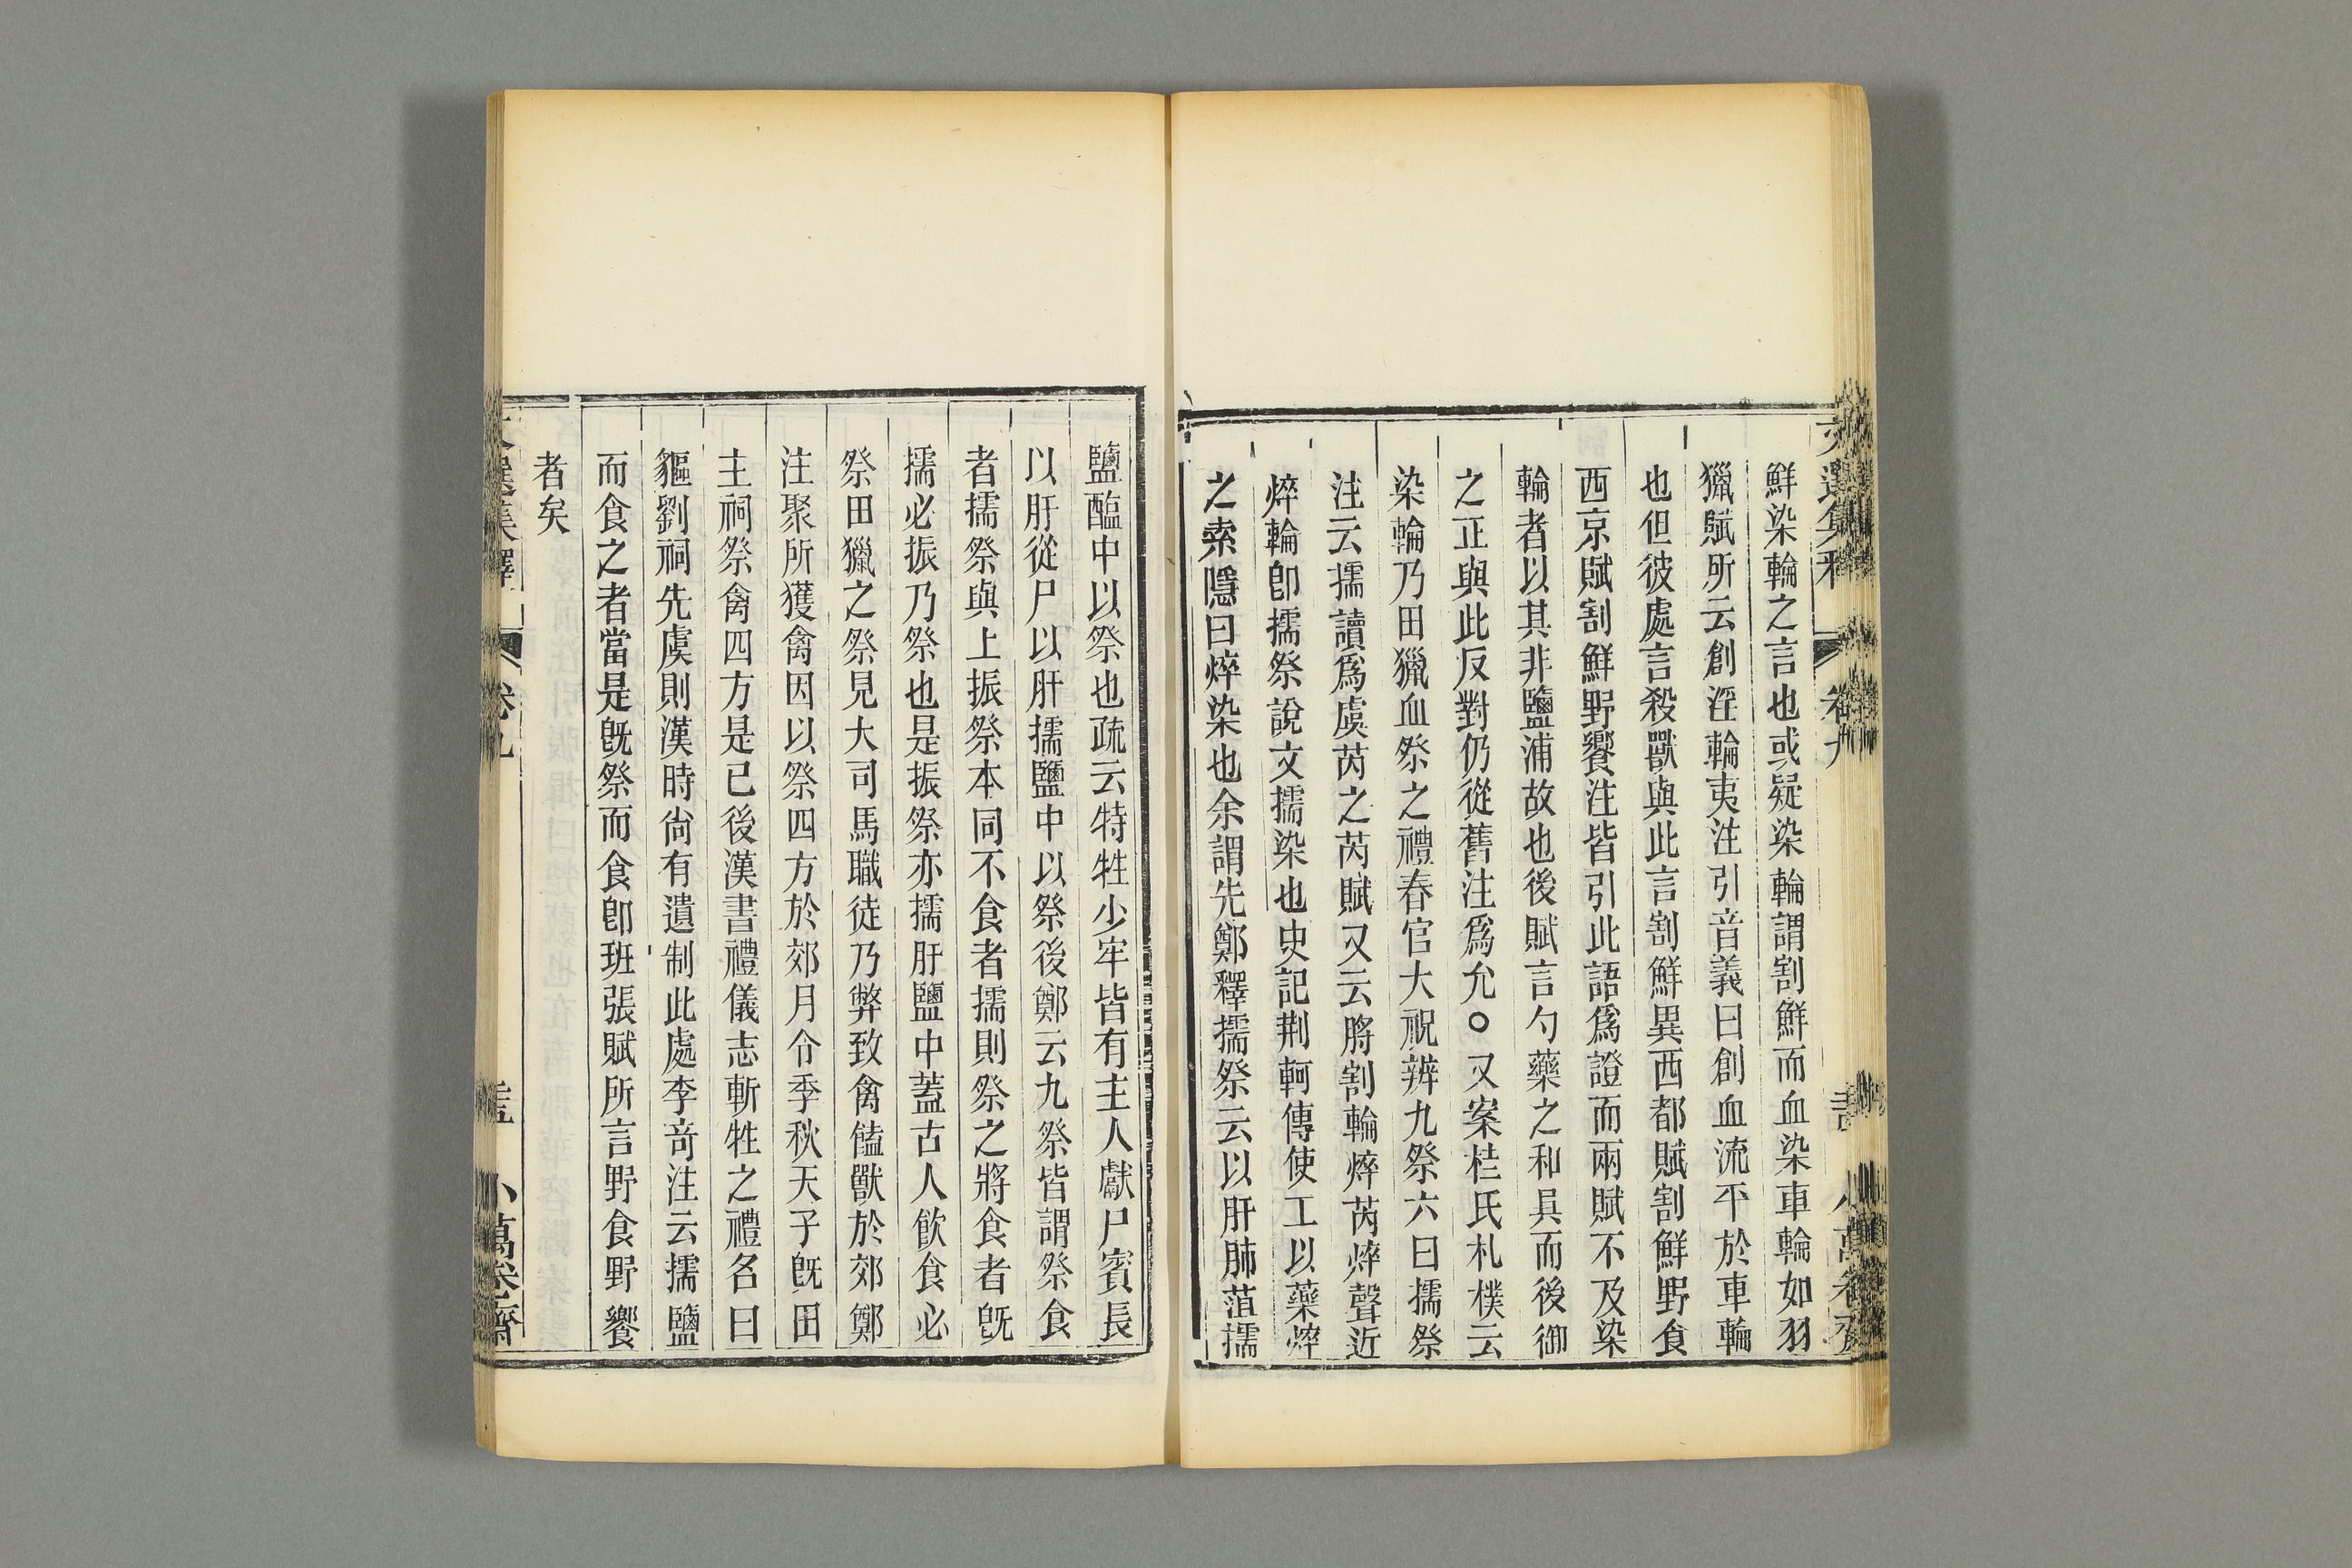 鮮染輪之言也或疑染輪謂割鮮而血染車輪如羽
獵賦所云創淫輪夷注引音義曰創血流平於車輪
也但彼處言殺獸與此言割鮮異西都賦割鮮野食
西京賦割鮮野饗注皆引此語爲證而兩賦不及染
輪者以其非鹽浦故也後賦言勺藥之和具而後御
之正與此反對仍從舊注爲允○又案桂氏札樸云
染輪乃田獵血祭之禮春官大祝辨九祭六曰擩祭
注云擩讀爲虞芮之芮賦又云脟割輪焠芮焠聲近
焠輪卽擩祭說文擩染也史記荆軻傳使工以藥焠
之索隱曰焠染也余謂先鄭釋擩祭云以肝肺菹擩
鹽醢中以祭也疏云特牲少牢皆有主人獻尸賓長
以肝從尸以肝擩鹽中以祭後鄭云九祭皆謂祭食
者擩祭與上振祭本同不食者擩則祭之將食者旣
擩必振乃祭也是振祭亦擩肝鹽中蓋古人飮食必
祭田獵之祭見大司馬職徒乃弊致禽饁獸於郊鄭
注聚所獲禽因以祭四方於郊月令季秋天子旣田
主祠祭禽四方是已後漢書禮儀志斬牲之禮名曰
貙劉祠先虞則漢時尙有遺制此處李奇注云擩鹽
而食之者當是旣祭而食卽班張賦所言野食野饗
者矣